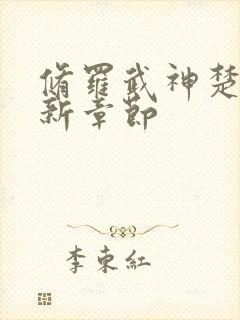 脩羅武神楚
新章節
李東紅